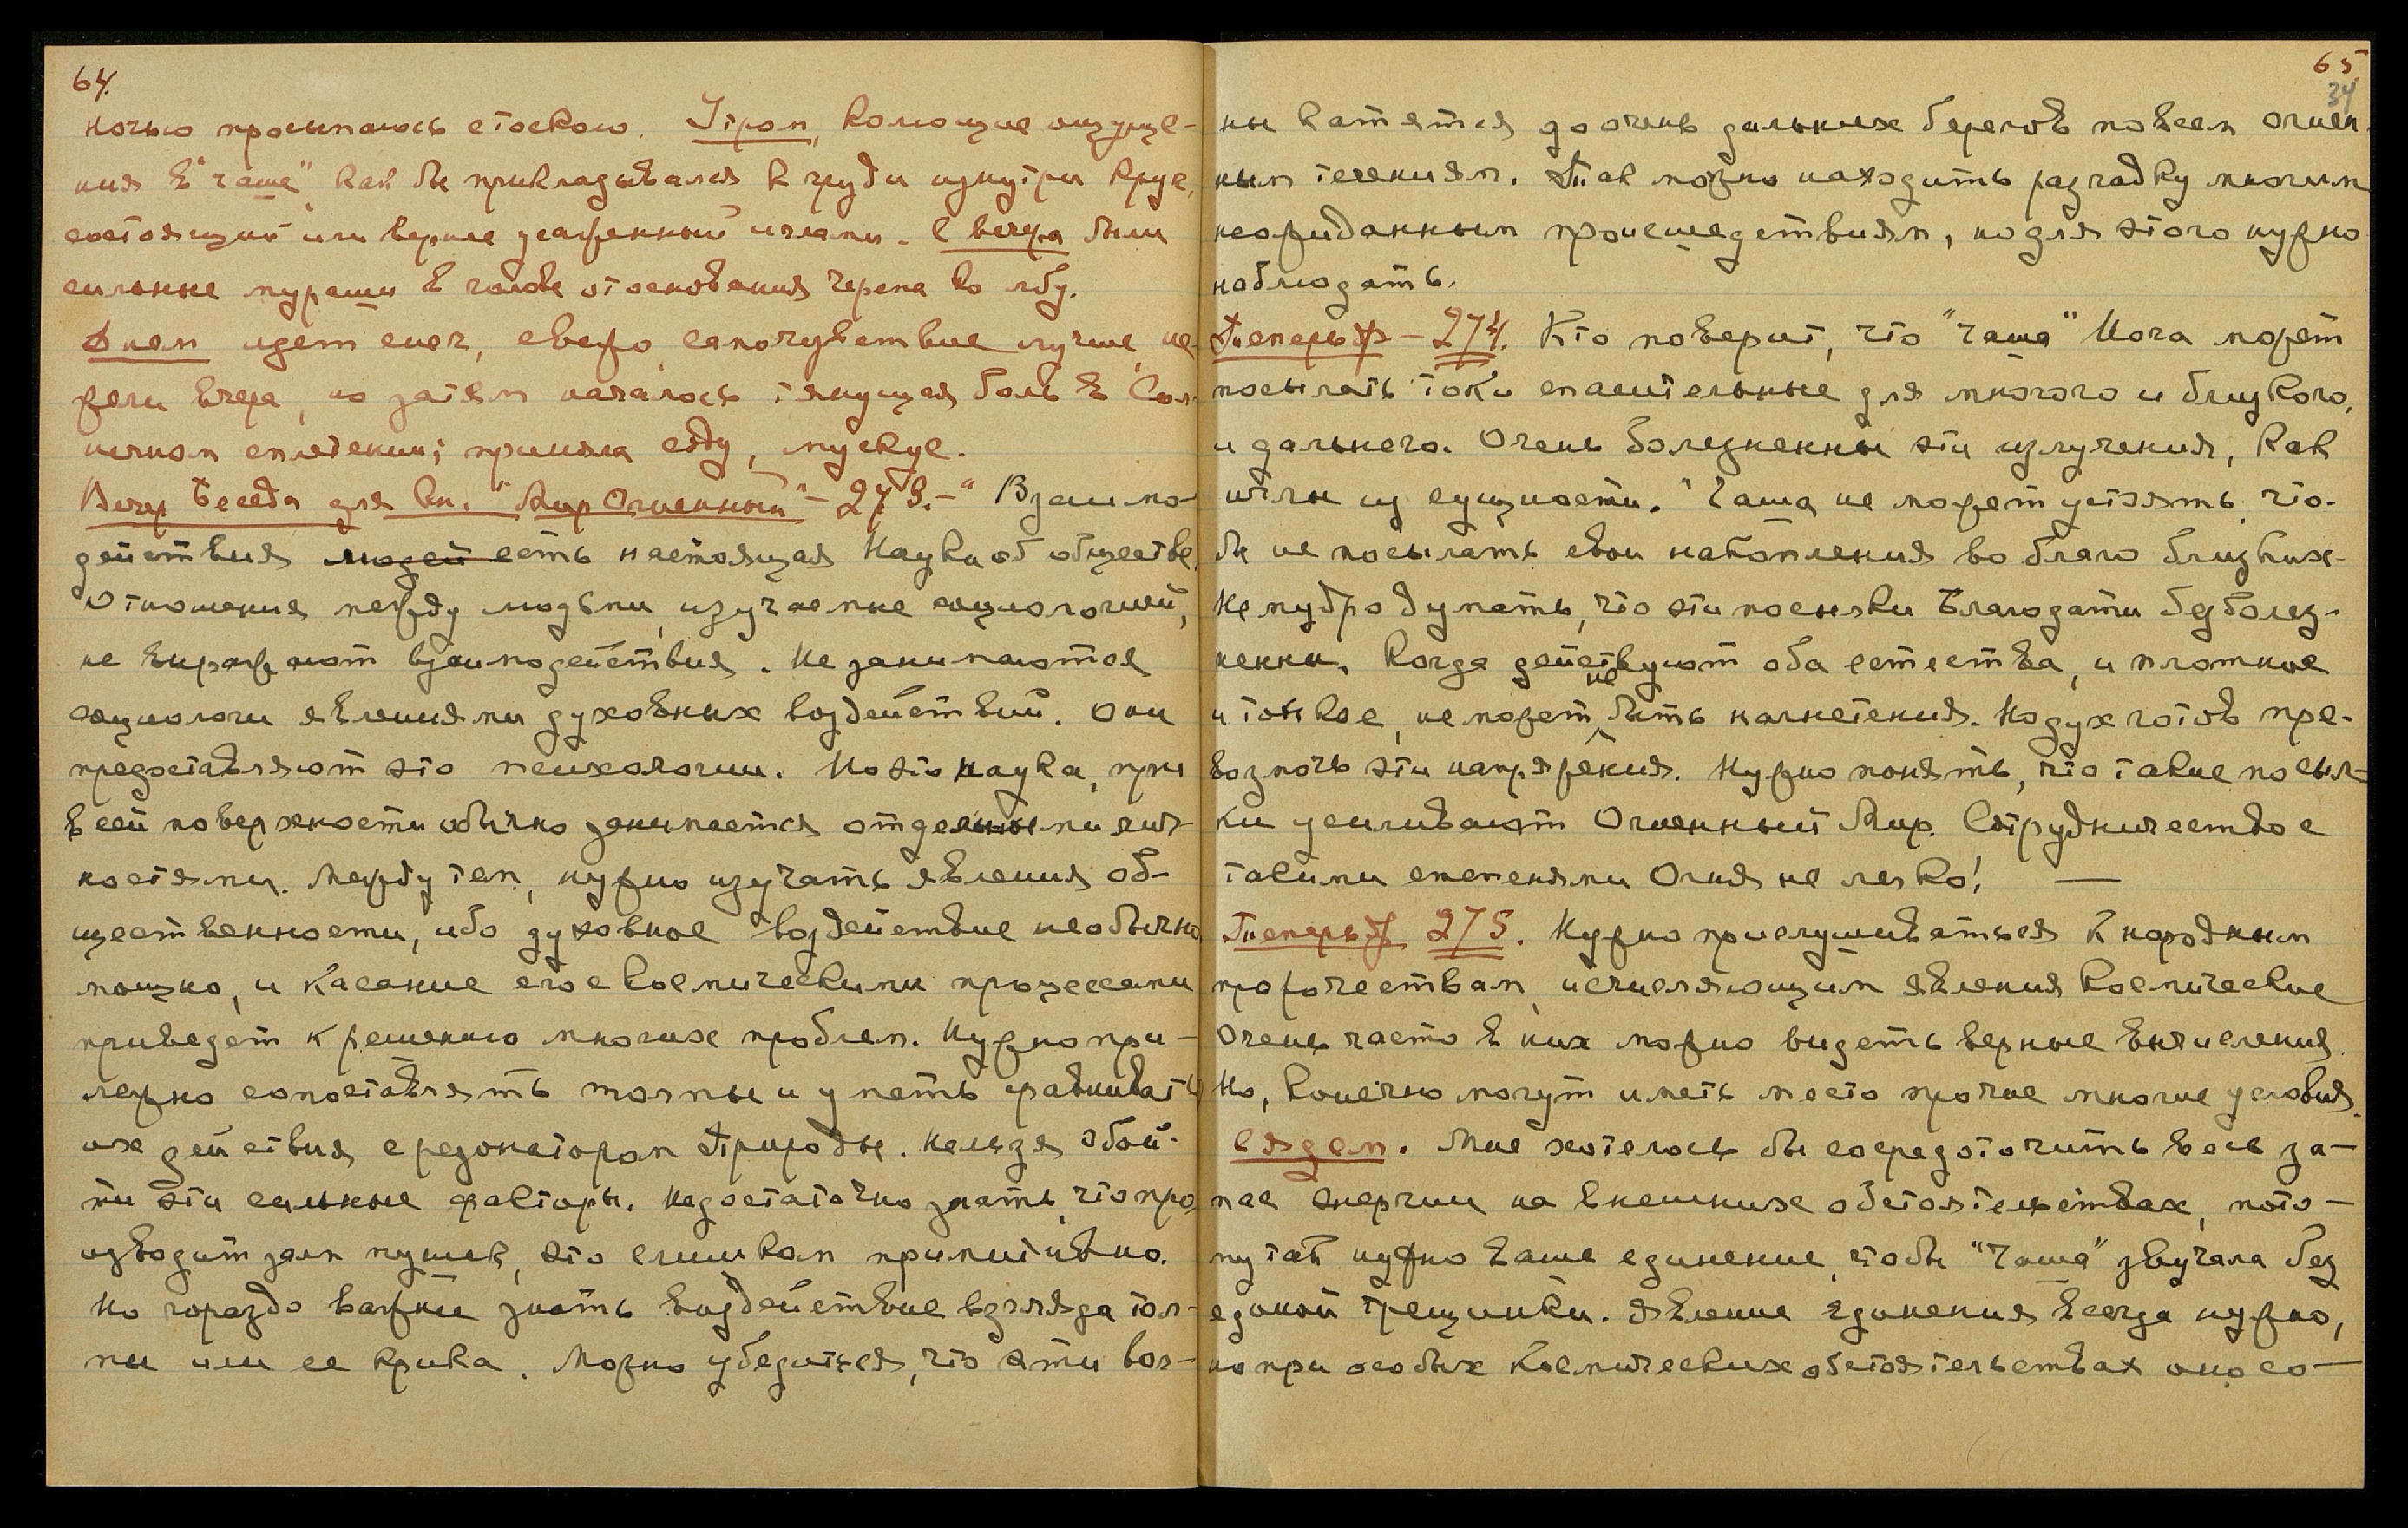 64.
ночью просыпаюсь с тоскою. Утром, колющие ощуще-
ния в "чаше", как бы прикладывался к груди изнутри круг,
состоящий или вернее усаженный иглами. С вечера были
сильные мураши в голове от основания черепа ко лбу.
Днем идет снег, свежо, самочувствие лучше, не-
жели вчера, но затем началась тянущая боль в Сол-
нечном сплетении; приняла соду, мускус.
Вечер Беседа для кн. "Мир Огненный" – 273. – "Взаимо-
действия людей есть настоящая Наука об обществе.
Отношения между людьми, изучаемые социологией,
не выражают взаимодействия. Не занимаются
социологи явлениями духовных воздействий. Они
предоставляют это психологии. Но эта наука, при
всей поверхности обычно занимается отдельными лич-
ностями. Между тем, нужно изучать явления об-
щественности, ибо духовное воздействие необычно
мощно, и касание его с космическими процессами
приведет к решению многих проблем. Нужно при-
лежно сопоставлять толпы и уметь сравнивать
их действия с резонатором Природы. Нельзя обой-
ти эти сильные факторы. Недостаточно знать, что про-
изводит залп пушек, это слишком примитивно.
Но гораздо важнее знать воздействие взгляда тол-
пы или ее крика. Можно убедиться, что эти вол-
65
34
ны катятся до очень дальних берегов по всем огнен-
ным течениям. Так можно находить разгадку многим
неожиданным происшедствиям, но для этого нужно
наблюдать.
Теперь ж – 274. Кто поверит, что "чаша" Йога может
посылать токи спасительные для многого и близкого,
и дальнего. Очень болезненны эти излучения, как
иглы из сущности. "Чаша не может устоять, что-
бы не посылать свои накопления во благо ближних.
Не мудро думать, что эти посылки Благодати безболез-
ненны. Когда действуют оба естества, и плотное
и тонкое, не может не быть нагнетения. Но дух готов пре-
возмочь эти напряжения. Нужно понять, что такие посыл-
ки усиливают Огненный Мир. Сотрудничество с
такими степенями Огня не легко! —
Теперь ж 275. Нужно прислушиваться к народным
пророчествам, исчисляющим явления космические
Очень часто в них можно видеть верные вычисления.
Но, конечно могут иметь место прочие многие условия.
Сядем. Мне хотелось бы сосредоточить весь за-
пас энергии на внешних обстоятельствах, пото-
му так нужно Ваше единение, чтобы "Чаша" звучала без
единой трещинки. Явление единения всегда нужно,
но при особых космических обстоятельствах оно со-